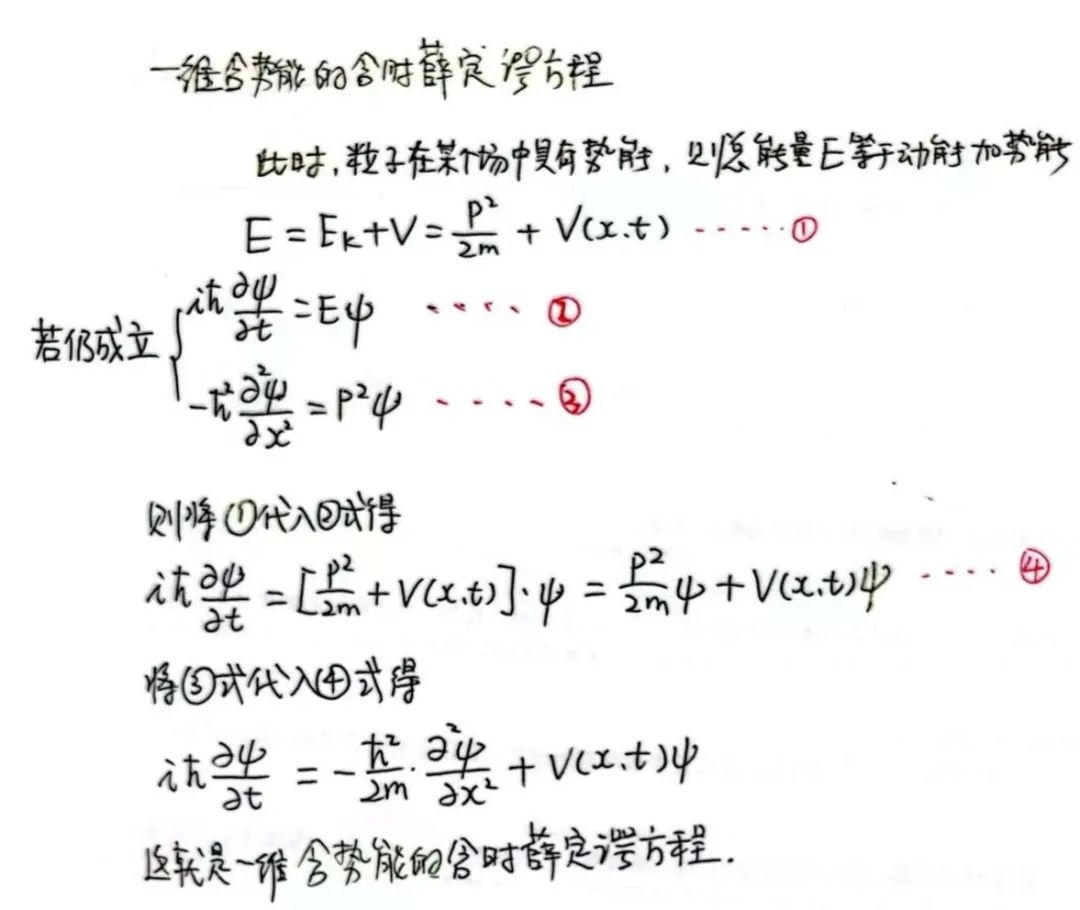 一维含势能的含时薛定谔方程
此时,粒子在某个场中具有势能,则总能量E等于动能加势能
E = Eₖ+V = p²/2m + V(x.t) ······①
若仍成立 { iħ ∂ψ/∂t = Eψ ····· ②
-ħ² ∂²ψ/∂x² = p²ψ ····· ③
则将①代入②式得
iħ ∂ψ/∂t = [p²/2m + V(x.t)]·ψ = p²/2m ψ + V(x,t)ψ ····· ④
将③式代入④式得
iħ ∂ψ/∂t = -ħ²/2m · ∂²ψ/∂x² + V(x.t)ψ
这就是一维含势能的含时薛定谔方程.